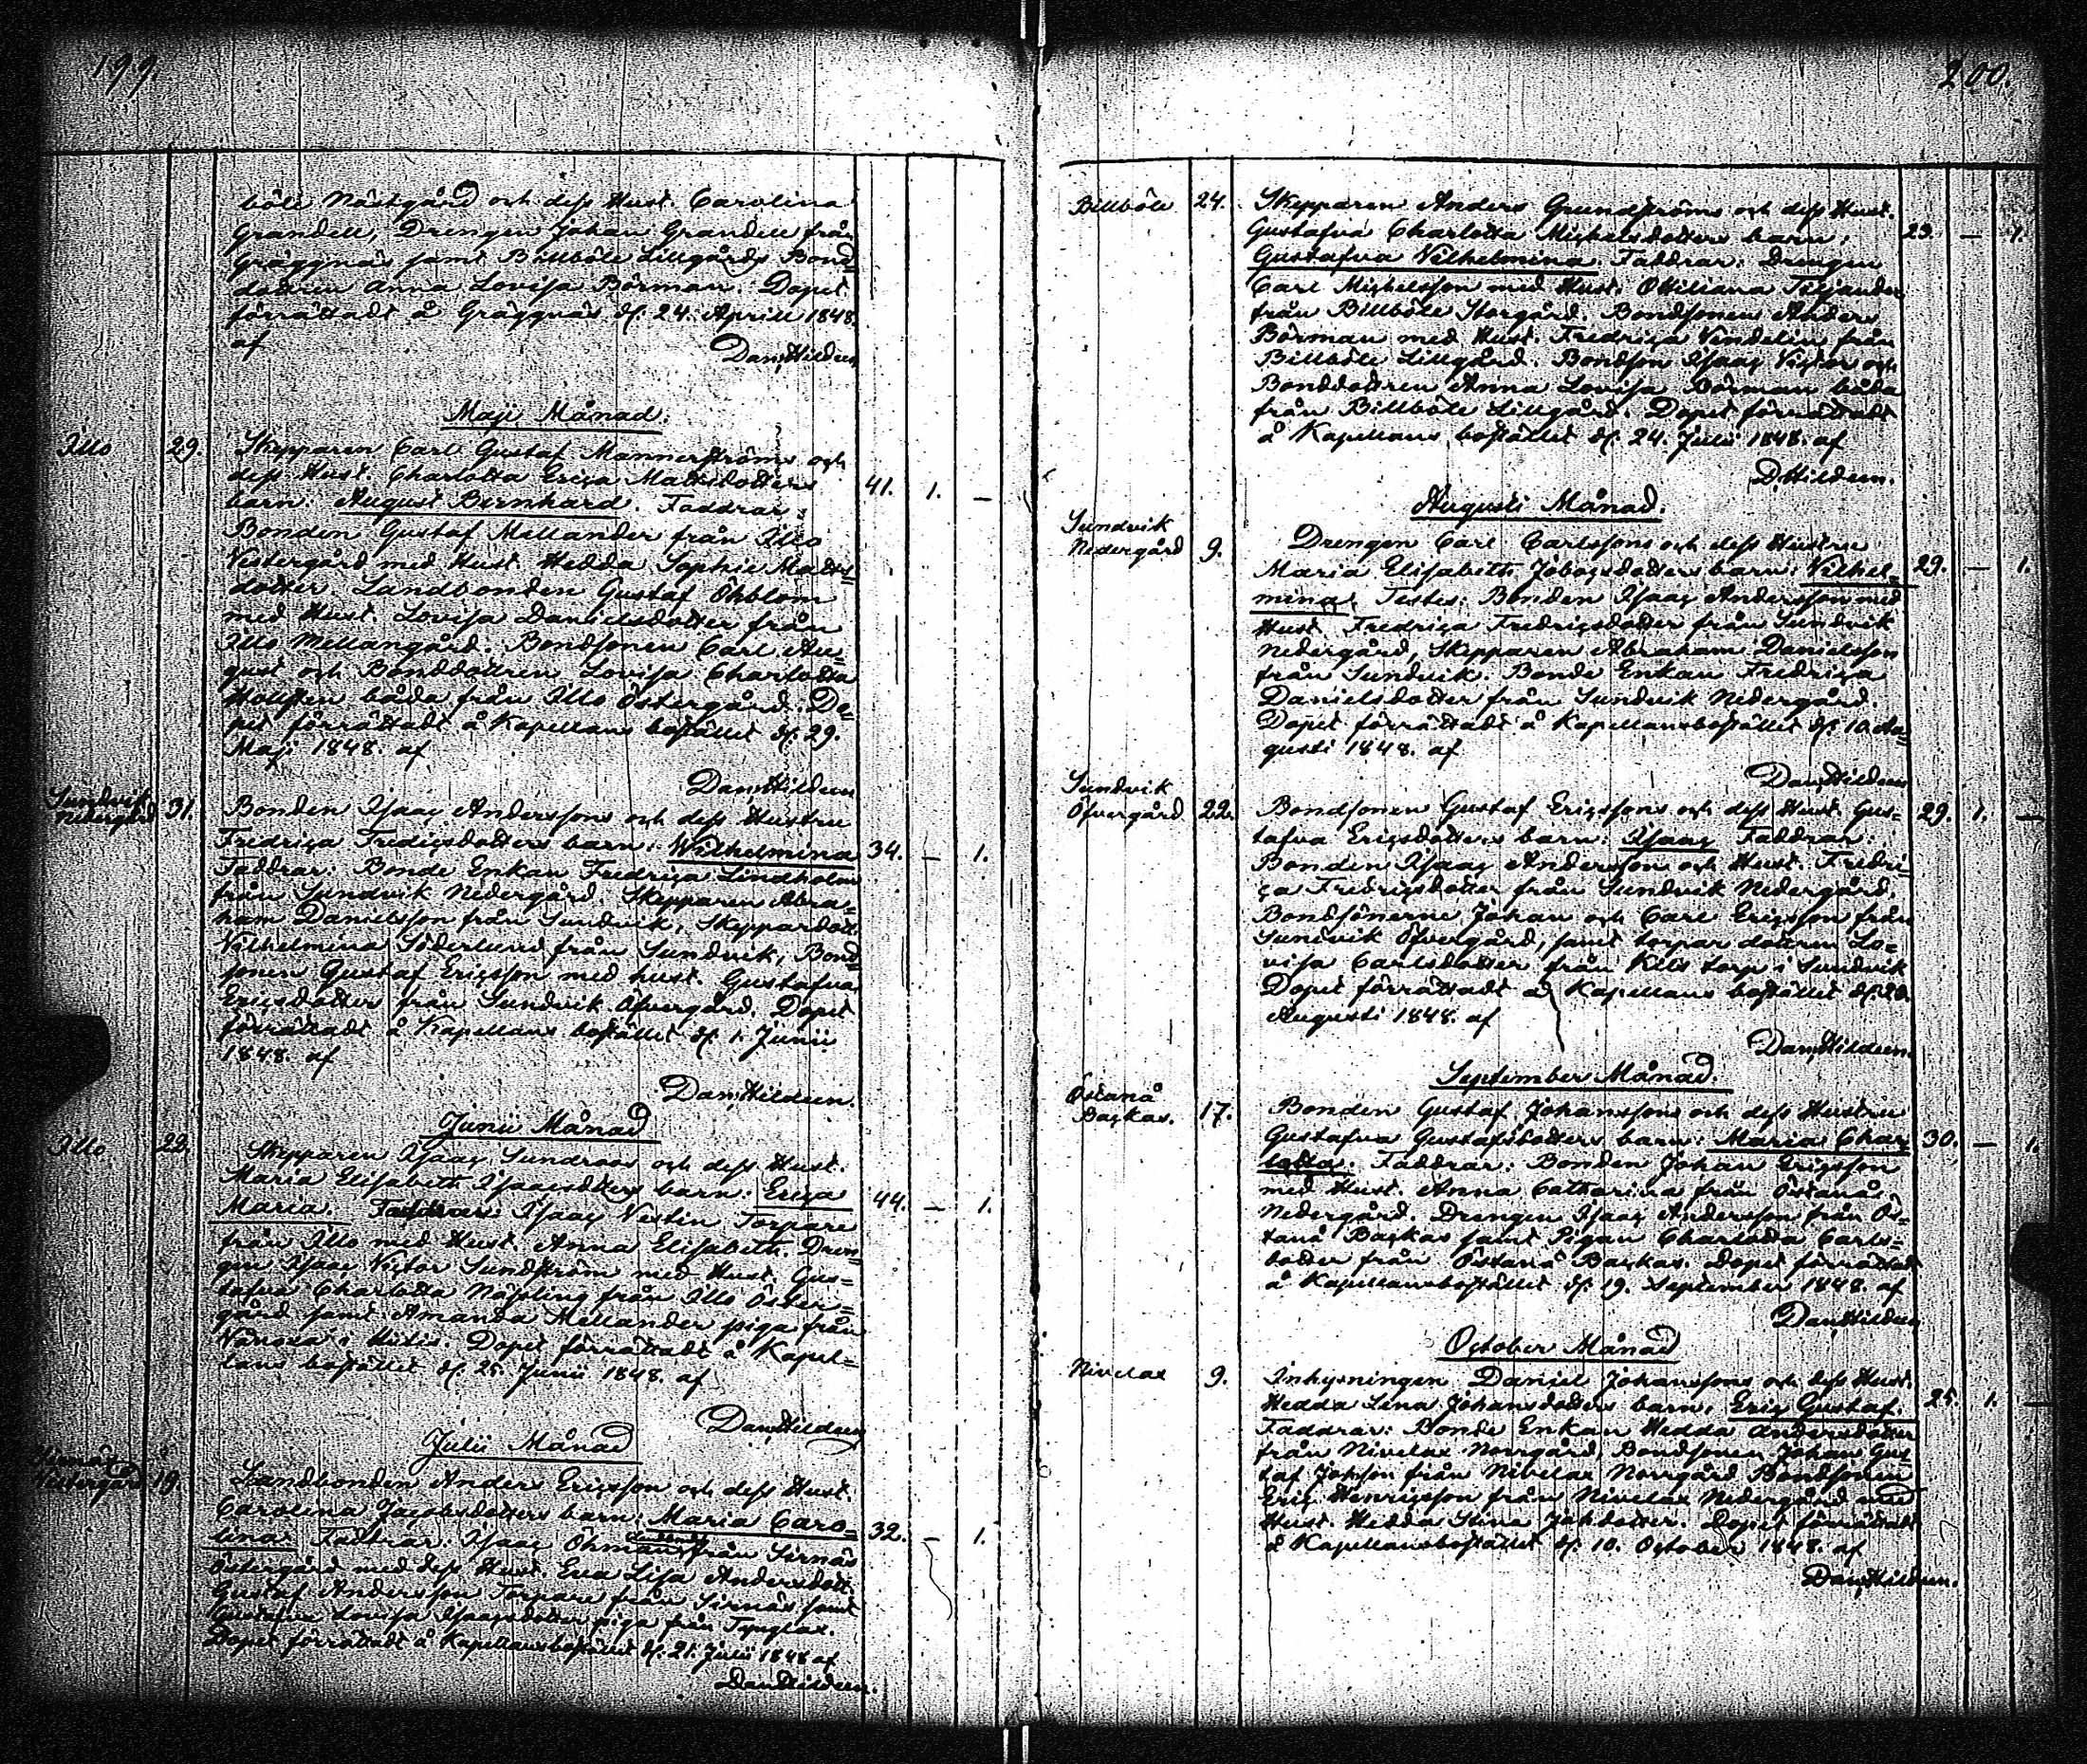 199.
böle Nästgård och dess Hust. Carolina
Grandell, Drengen Johan Grandell från
Gräggnäs samt Billböle Lillgårds Bond=
dottren Anna Lovisa Börman. Dopet
förrättadt å Gräggnäs d. 24. Aprill 1848.
af
Dan. Hildeen
Maji Månad.
Illo 29. Skepparen Carl Gustaf Mannerströms och
dess Hust. Charlotta Erica Mattsdotters 41. 1. —
barn: August Bernhard. Faddrar:
Bonden Gustaf Mellander från Illo
Vestergård med Hust. Hedda Sophie Matts=
dotter. Landbonden Gustaf Öhblom
med Hust. Lovisa Danielsdotter från
Illo Mellangård. Bondsonen Carl Au=
gust och Bonddottren Lovisa Charlotta
båda från Illo Östergård. Do=
pet förrättadt å Kapellans bostället d. 29.
Maji 1848. af
Dan. Hildeen
Sundvik
Nedergård 31. Bonden Isaac Anderssons och dess Hustru
Fredrica Fredricsdotters barn: Wilhelmina 34. — 1.
Faddrar: Bonde Enkan Fredrica Lindholm
från Sundvik Nedergård. Skepparen Abra=
ham Danielsson från Sundvik, Skeppardott.
Vilhelmina Söderlund från Sundvik, Bond=
sonen Gustaf Ericsson med hust. Gustafva
Ericsdotter från Sundvik Öfvergård. Dopet
förrättadt å Kapellans bostället d. 1. Junii
1848. af
Dan. Hildeen.
Junii Månad
Illo 22. Skepparen Isaac Sundroos och dess Hust.
Maria Elisabeth Isaacsdotters barn: Erica 44. — 1.
Maria. Faddrar: Isaac Vestin Torpare
från Illo med Hust. Anna Elisabeth. Dren=
gen Isaac Victor Sundström med Hust. Gus=
tafva Charlotta Nässling från Illo Öster=
gård samt Amanda Mellander piga från
Vänoxa i Hitis. Dopet förrättadt å Kapel=
lans bostället d. 25. Junii 1848. af
Dan. Hildeen
Julii Månad
Sirnäs
Vestergård 19. Landbonden Anders Ericsson och dess Hust.
Carolina Jacobsdotters barn: Maria Caro=
lina. Faddrar: Isaac Öhman från Sirnäs 32. — 1.
Östergård med dess Hust. Eva Lisa Andersdott.
Gustaf Andersson Torpare från Sirnäs samt
Gustafva Lovisa Isaacsdotter piga från Tynglax.
Dopet förrättadt å Kapellansbostället d. 21. Julii 1848 af
Dan. Hildeen.
200.
Billböle 24. Skepparen Anders Grundströms och dess Hust.
Gustafva Charlotta Michelsdotters barn: 23. — 1.
Gustafva Vilhelmina. Faddrar: Drengen
Carl Michelsson med Hust. Ottiliana
från Billböle Storgård. Bondsonen Anders
Börman med Hust. Fredrica Vendelin från
Billböle Lillgård. Bondson Isaac Victor och
Bonddottren Anna Lovisa Börman båda
från Billböle Lillgård. Dopet förrättadt
å Kapellans bostället d. 24. Julii 1848. af
D. Hildeen.
Augusti Månad.
Sundvik
Nedergård 9. Drengen Carl Carlssons och dess Hustru
Maria Elisabeth Jacobsdotters barn: Vilhel= 29. — 1.
mina. Testes: Bonden Isaac Andersson med
Hust. Fredrica Fredricsdotter från Sundvik
Nedergård, Skepparen Abraham Danielsson
från Sundvik. Bonde Enkan Fredrica
Danielsdotter från Sundvik Nedergård.
Dopet förrättadt å Kapellansbostället d. 10. Au=
gusti 1848. af
Dan. Hildeen
Sundvik
Öfvergård 22. Bondsonen Gustaf Ericssons och dess Hust. Gus= 29. 1. —
tafva Ericsdotters barn: Isaac Faddrar:
Bonden Isaac Andersson och Hust. Fredri=
ca Fredricsdotter från Sundvik Nedergård.
Bondsönerne Johan och Carl Ericsson från
Sundvik Öfvergård, samt torpar dottren Lo=
visa Carlsdotter från torp i Sundvik
Dopet förrättadt å Kapellans bostället d.
Augusti 1848. af
Dan. Hildeen.
September Månad.
Östanå
Backas. 17. Bonden Gustaf Johanssons och dess Hustru
Gustafva Gustafsdotters barn: Maria Char= 30. — 1.
lotta. Faddrar: Bonden Johan Ericsson
med Hust. Anna Catharina från Östanå
Nedergård. Drengen Isaac Andersson från Ös=
tanå Backas samt Pigan Charlotta Carls=
dotter från Östanå Backas. Dopet förrättadt
å Kapellansbostället d. 19. September 1848. af
Dan. Hildeen
October Månad
Nivelax 9. Inhysningen Daniel Johanssons och dess Hust.
Hedda Lena Johansdotters barn: Eric Gustaf. 25. 1. —
Faddrar: Bonde Enkan Hedda Andersdotter
från Nivelax Norrgård, Bondsonen Johan Gus=
taf Johsson från Nivelax Norrgård Bondsonen
Eric Henricsson från Nivelax Nedergård med
Hust. Hedda Stina Johsdotter. Dopet förrättadt
å Kapellansbostället d. 10. October 1848. af
Dan. Hildeen.